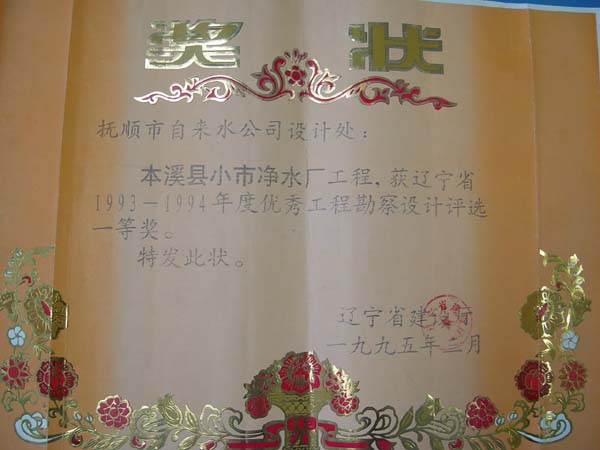 奖状
抚顺市自来水公司设计处：
本溪县小市净水厂工程，获辽宁省
1993－1994年度优秀工程勘察设计评选
一等奖。
特发此状。
辽宁省建设厅
一九九五年二月